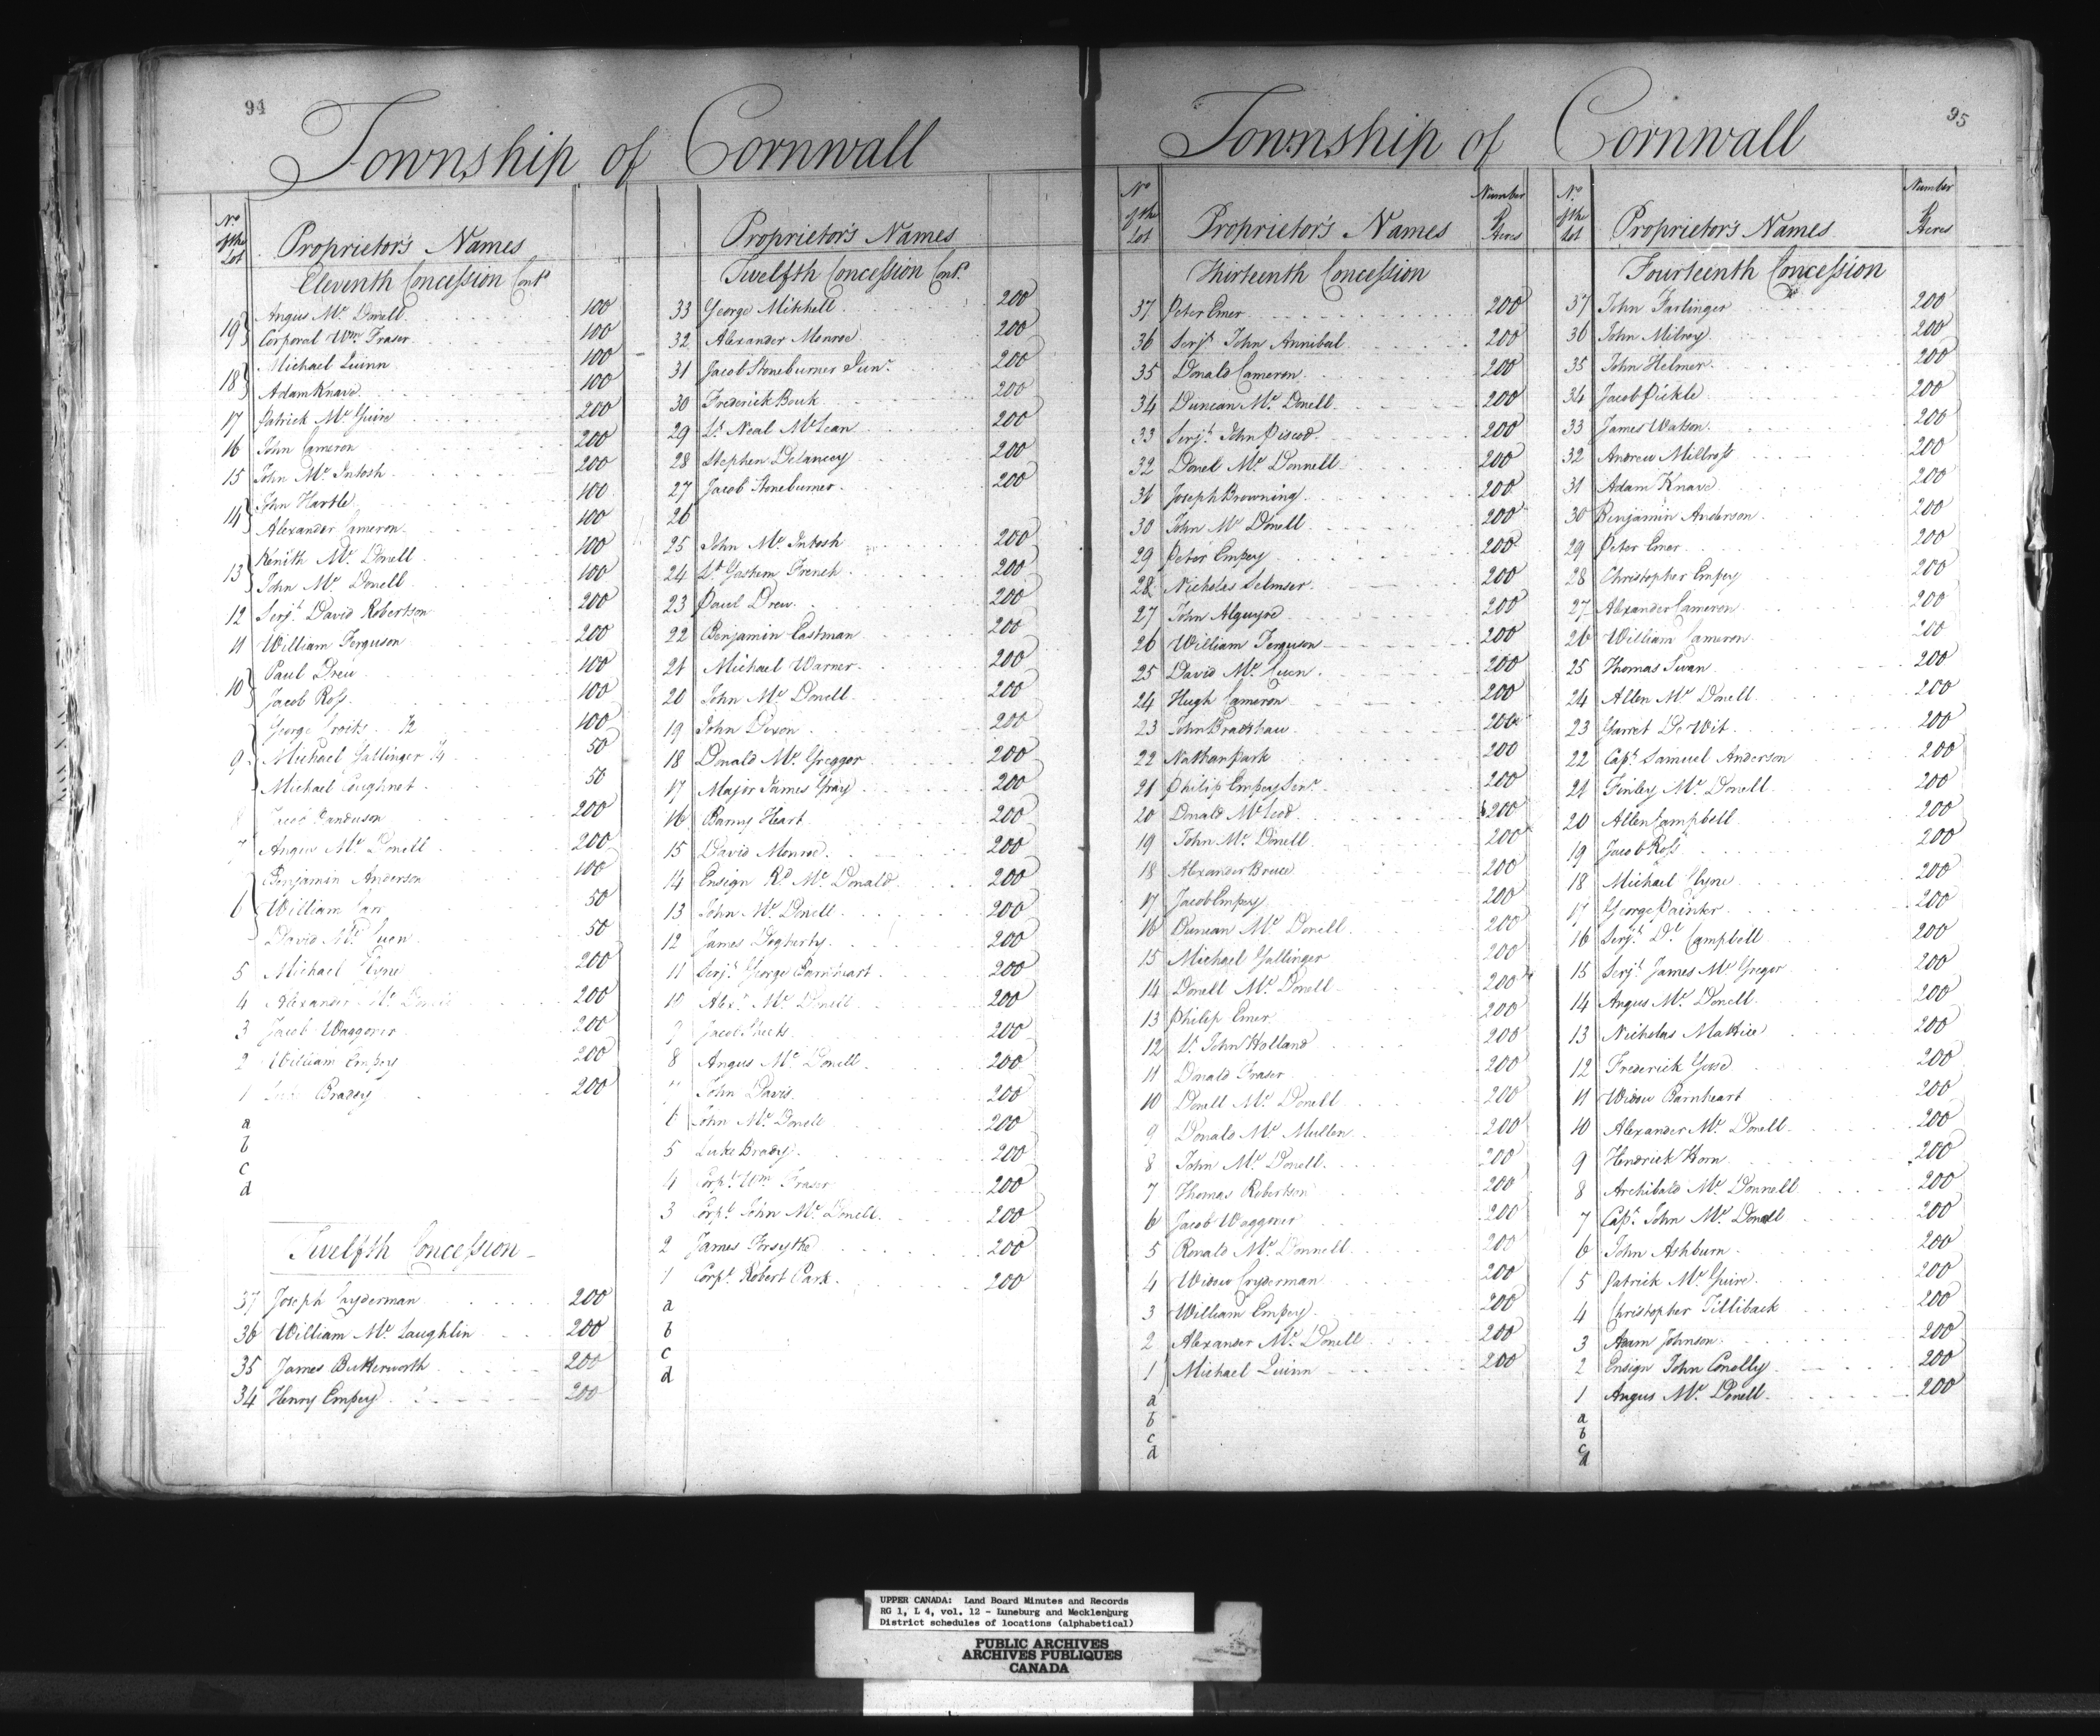 94
Township of Cornwall
No. of the Lot
Proprietor's Names
Eleventh Concession Cont.d
19 Angus Mc. Donell 100
Corporal Wm. Fraser 100
18 Michael Quinn 100
Adam Knave 100
17 Patrick Mc. Guire 200
16 John Cameron 200
15 John Mc. Intosh 200
14 John Hartle 100
Alexander Cameron 100
13 Kenith Mc. Donell 100
John Mc. Donell 100
12 Serjt. David Robertson 200
11 William Ferguson 200
10 Paul Drew 100
Jacob Ross 100
9 George 1/2 100
Michael Gallinger 1/4 50
Michael Coughnet 50
200
7 Angus Mc. Donell 200
6 Benjamin Anderson 100
William Carr 50
David Mc. Cuen 50
5 Michael Clyne 200
4 Alexander Mc. Donell 200
3 Jacob Waggoner 200
2 William Empey 200
1 Luke Bradey 200
a
b
c
d
Twelfth Concession
37 Joseph Cryderman 200
36 William Mc. Laughlin 200
35 James Butterworth 200
34 Henry Empey 200
Proprietor's Names
Twelfth Concession Cont.d
33 George Mitchell 200
32 Alexander Monroe 200
31 Jacob Stoneburner Junr. 200
30 Frederick Bouk 200
29 Lt. Neal McLean 200
28 Stephen Delancey 200
27 Jacob Stoneburner 200
26
25 John Mc. Intosh 200
24 Lt. Gashem French 200
23 Paul Drew 200
22 Benjamin Eastman 200
21 Michael Warner 200
20 John Mc. Donell 200
19 John Dixon 200
18 Donald Mc. Greggor 200
17 Major James Gray 200
16 Barny Heart 200
15 David Monroe 200
14 Ensign Rd. Mc. Donald 200
13 John Mc. Donell 200
12 James Dogherty 200
11 Serjt. George Barnheart 200
10 Alexr. Mc. Donell 200
9 Jacob Sheets 200
8 Angus Mc. Donell 200
7 John Davis 200
6 John Mc. Donell 200
5 Luke Bradey 200
4 Corpl. Wm. Fraser 200
3 Corpl. John Mc. Donell 200
2 James Forsythe 200
1 Corpl. Robert Park 200
a
b
c
d
95
Township of Cornwall
No. of the Lot
Proprietor's Names
Number of Acres
Thirteenth Concession
37 Peter Emer 200
36 Serjt. John Annibal 200
35 Donald Cameron 200
34 Duncan Mc. Donell 200
33 Serjt. John Piscod 200
32 Donel Mc. Donnell 200
31 Joseph Browning 200
30 John Mc. Donell 200
29 Peter Empey 200
28 Nicholas Selmser 200
27 John Alguyre 200
26 William Ferguson 200
25 David Mc. Cuen 200
24 Hugh Cameron 200
23 John Bradshaw 200
22 Nathan Park 200
21 Philip Empey Senr. 200
20 Donald Mc. Leod 200
19 John Mc. Donell 200
18 Alexander Bruce 200
17 Jacob Empey 200
16 Duncan Mc. Donell 200
15 Michael Gallinger 200
14 Donell Mc. Donell 200
13 Philip Emer 200
12 Lt. John Holland 200
11 Donald Fraser 200
10 Donell Mc. Donell 200
9 Donald Mc. Mullen 200
8 John Mc. Donell 200
7 Thomas Robertson 200
6 Jacob Waggoner 200
5 Ronald Mc. Donnell 200
4 Widow Cryderman 200
3 William Empey 200
2 Alexander Mc. Donell 200
1 Michael Quinn 200
a
b
c
d
No. of the Lot
Proprietor's Names
Number of Acres
Fourteenth Concession
37 John Farlinger 200
36 John Milroy 200
35 John Helmer 200
34 Jacob Pickle 200
33 James Watson 200
32 Andrew Millross 200
31 Adam Knave 200
30 Benjamin Anderson 200
29 Peter Emer 200
28 Christopher Empey 200
27 Alexander Cameron 200
26 William Cameron 200
25 Thomas Swan 200
24 Allen Mc. Donell 200
23 Garret De Wit 200
22 Capt. Samuel Anderson 200
21 Finley Mc. Donell 200
20 Allen Campbell 200
19 Jacob Ross 200
18 Michael Clyne 200
17 George Painter 200
16 Serjt. Dl. Campbell 200
15 Serjt. James Mc. Gregor 200
14 Angus Mc. Donell 200
13 Nicholas Mattice 200
12 Frederick Goose 200
11 Widow Barnheart 200
10 Alexander Mc. Donell 200
9 Hendrick Horn 200
8 Archibald Mc. Donnell 200
7 Capt. John Mc. Donell 200
6 John Ashburn 200
5 Patrick Mc. Guire 200
4 Christopher Tilliback 200
3 Adam Johnson 200
2 Ensign John Conolly 200
1 Angus Mc. Donell 200
a
b
c
d
UPPER CANADA: Land Board Minutes and Records
RG 1, L 4, vol. 12 - Luneburg and Mecklenburg
District schedules of locations (alphabetical)
PUBLIC ARCHIVES
ARCHIVES PUBLIQUES
CANADA